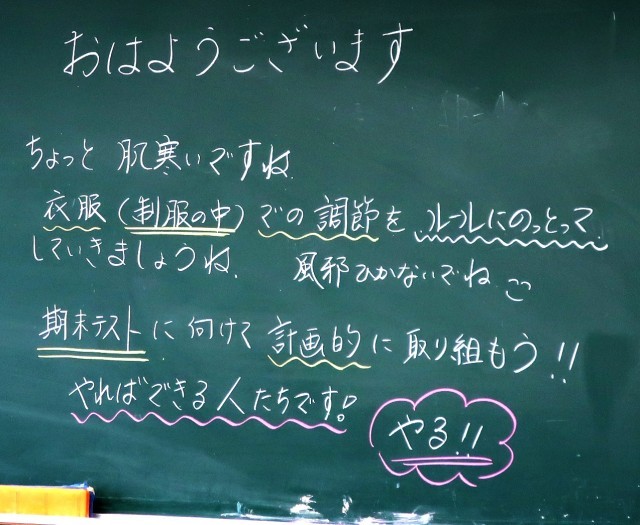 おはようございます
ちょっと 肌寒いですね
衣服(制服の中)での調節を ルールにのっとって
していきましょうね. 風邪ひかないでね
期末テストに向けて計画的に取り組もう!!
やればできる人たちです!
やる!!